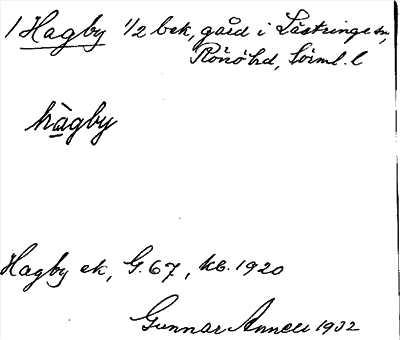 1 Hagby 1/2 bek, gård i Lästringe sn,
Rönö hd, Sörml. l
hàgby
Hagby ek, G. 67, kb. 1920
Gunnar Annell 1932